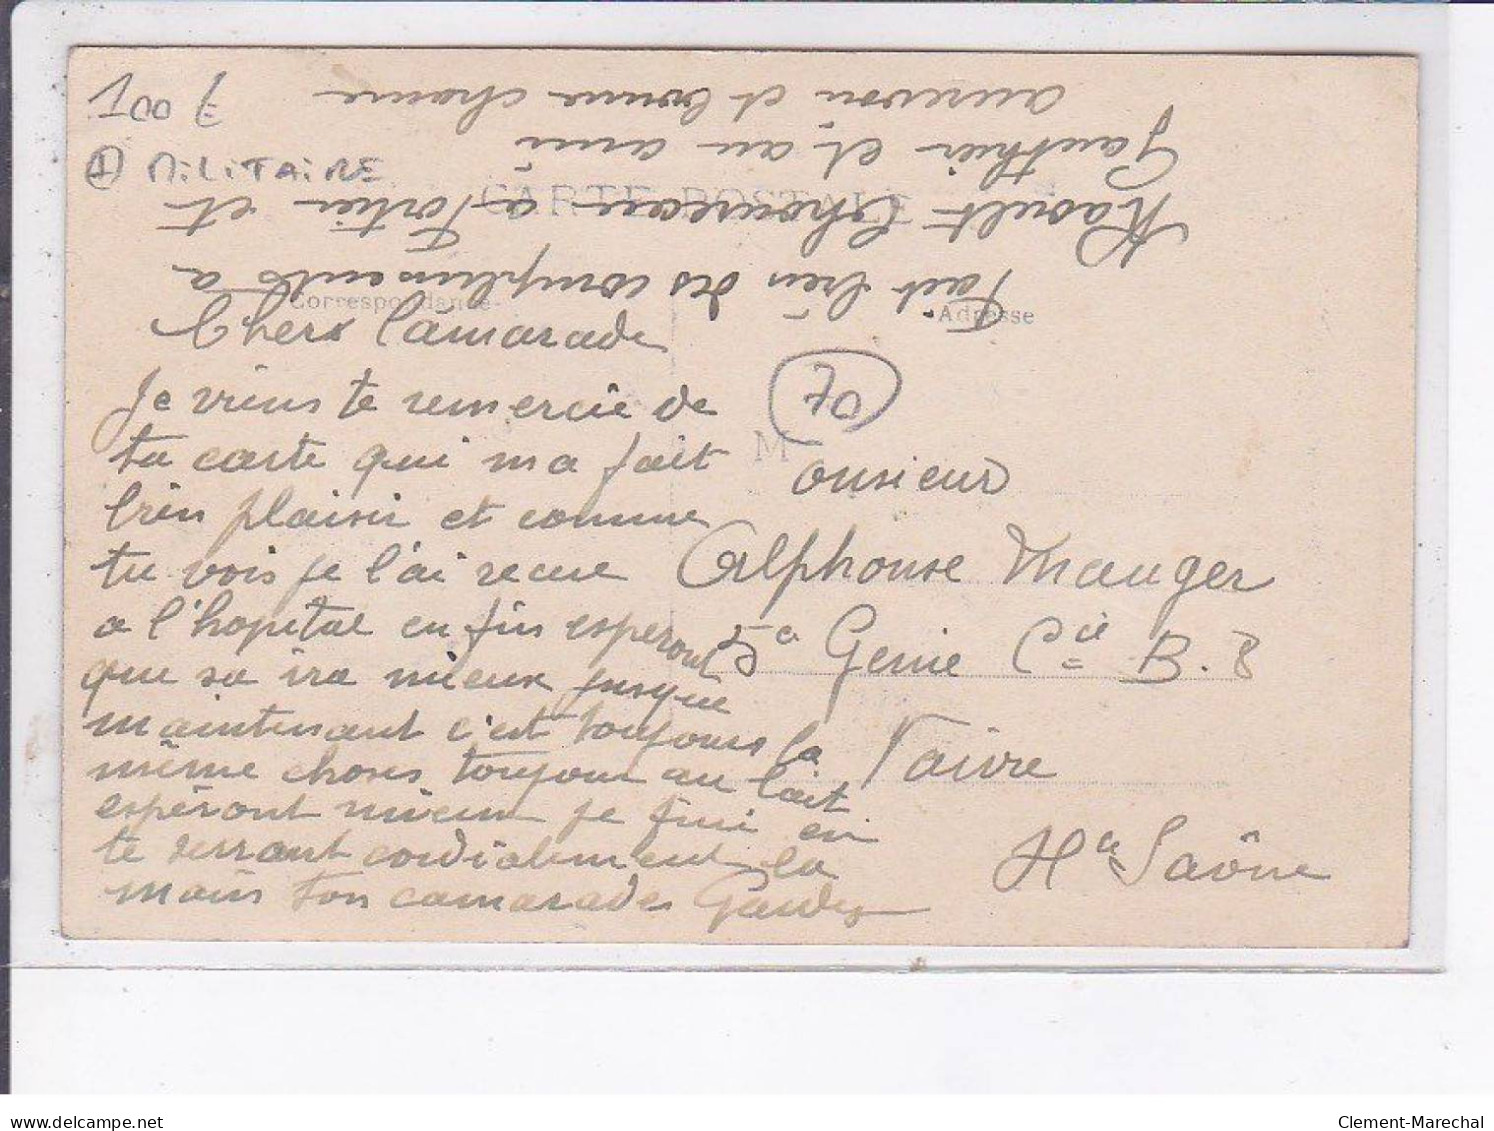 100 F
① MILITAIRE
CARTE POSTALE
Correspondance
Adresse
Chers Camarade
Je viens te remercie de
ta carte qui ma fait
bien plaisir et comme
tu vois je l'ai recue
a l'hopital en fin espéront
que sa ira mieux jusque
maintenant c'est toujours la
même choses toujour au lait
espéront mieux je fini en
te serrant cordialement la
main ton camarades
70
M
onsieur
Alphonse Mauger
5e Genie Cie B. 8
Vaivre
Hte Saône
Fait bien des compliments a
Raoult a Fortier et
Gauthier et au ami
aurevoir et bonne chance
delcampe.net
Clement-Marechal